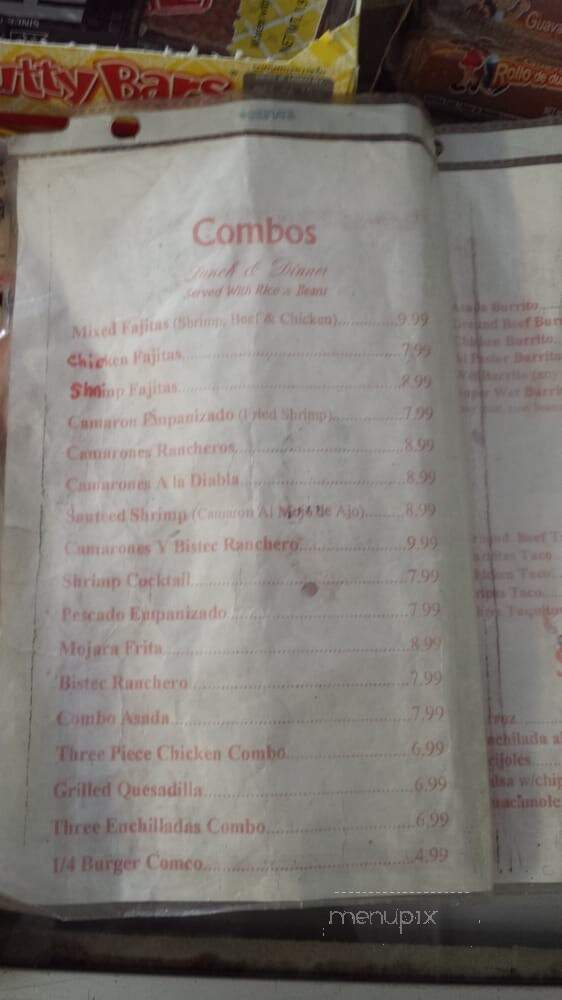 utty Bars
Guava
Rollo de
Combos
Lunch & Dinner
Served With Rice n Beans
Mixed Fajitas (Shrimp, Beef & Chicken)..............9.99
Chicken Fajitas..............7.99
Shrimp Fajitas..............8.99
Camaron Empanizado (Fried Shrimp)..............7.99
Camarones Rancheros..............8.99
Camarones A la Diabla..............8.99
Sauteed Shrimp (Camaron Al Mojo de Ajo)..............8.99
Camarones Y Bistec Ranchero..............9.99
Shrimp Cocktail..............7.99
Pescado Empanizado..............7.99
Mojara Frita..............8.99
Bistec Ranchero..............7.99
Combo Asada..............7.99
Three Piece Chicken Combo..............6.99
Grilled Quesadilla..............6.99
Three Enchilladas Combo..............6.99
1/4 Burger Comco..............4.99
Burrito
Beef
Burrito
Burrito
Beef
Taco
Taco
Taco
menupix